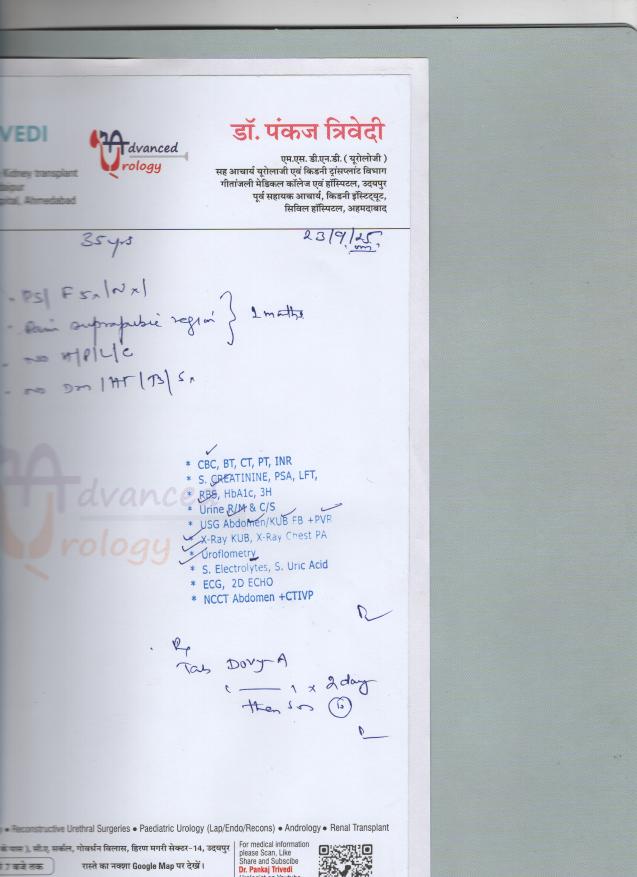 VEDI
Advanced
Urology
डॉ. पंकज त्रिवेदी
एम.एस. डी.एन.बी. ( यूरोलोजी )
Kidney transplant
सह आचार्य यूरोलोजी एवं किडनी ट्रांसप्लांट विभाग
गीतांजली मेडिकल कॉलेज एवं हॉस्पिटल, उदयपुर
पूर्व सहायक आचार्य, किडनी इंस्टिट्यूट,
Ahmedabad
सिविल हॉस्पिटल, अहमदाबाद
35 yrs
23/9/25
Pain suprapubic region
2 months
No H/P/L/C
No Dm / HT / TB / Sx
* CBC, BT, CT, PT, INR
* S. CREATININE, PSA, LFT,
* RBS, HbA1c, 3H
* Urine R/M & C/S
* USG Abdomen/KUB FB +PVR
* X-Ray KUB, X-Ray Chest PA
* Uroflometry
* S. Electrolytes, S. Uric Acid
* ECG, 2D ECHO
* NCCT Abdomen +CTIVP
Advanced
Urology
Rx
Tab
1 —— 1 x 2 day
then sos
• Reconstructive Urethral Surgeries • Paediatric Urology (Lap/Endo/Recons) • Andrology • Renal Transplant
के पास ), सी.ए. सर्कल, गोवर्धन विलास, हिरण मगरी सेक्टर-14, उदयपुर
7 बजे तक
रास्ते का नक्शा Google Map पर देखें।
For medical information
please Scan, Like
Share and Subscibe
Dr. Pankaj Trivedi